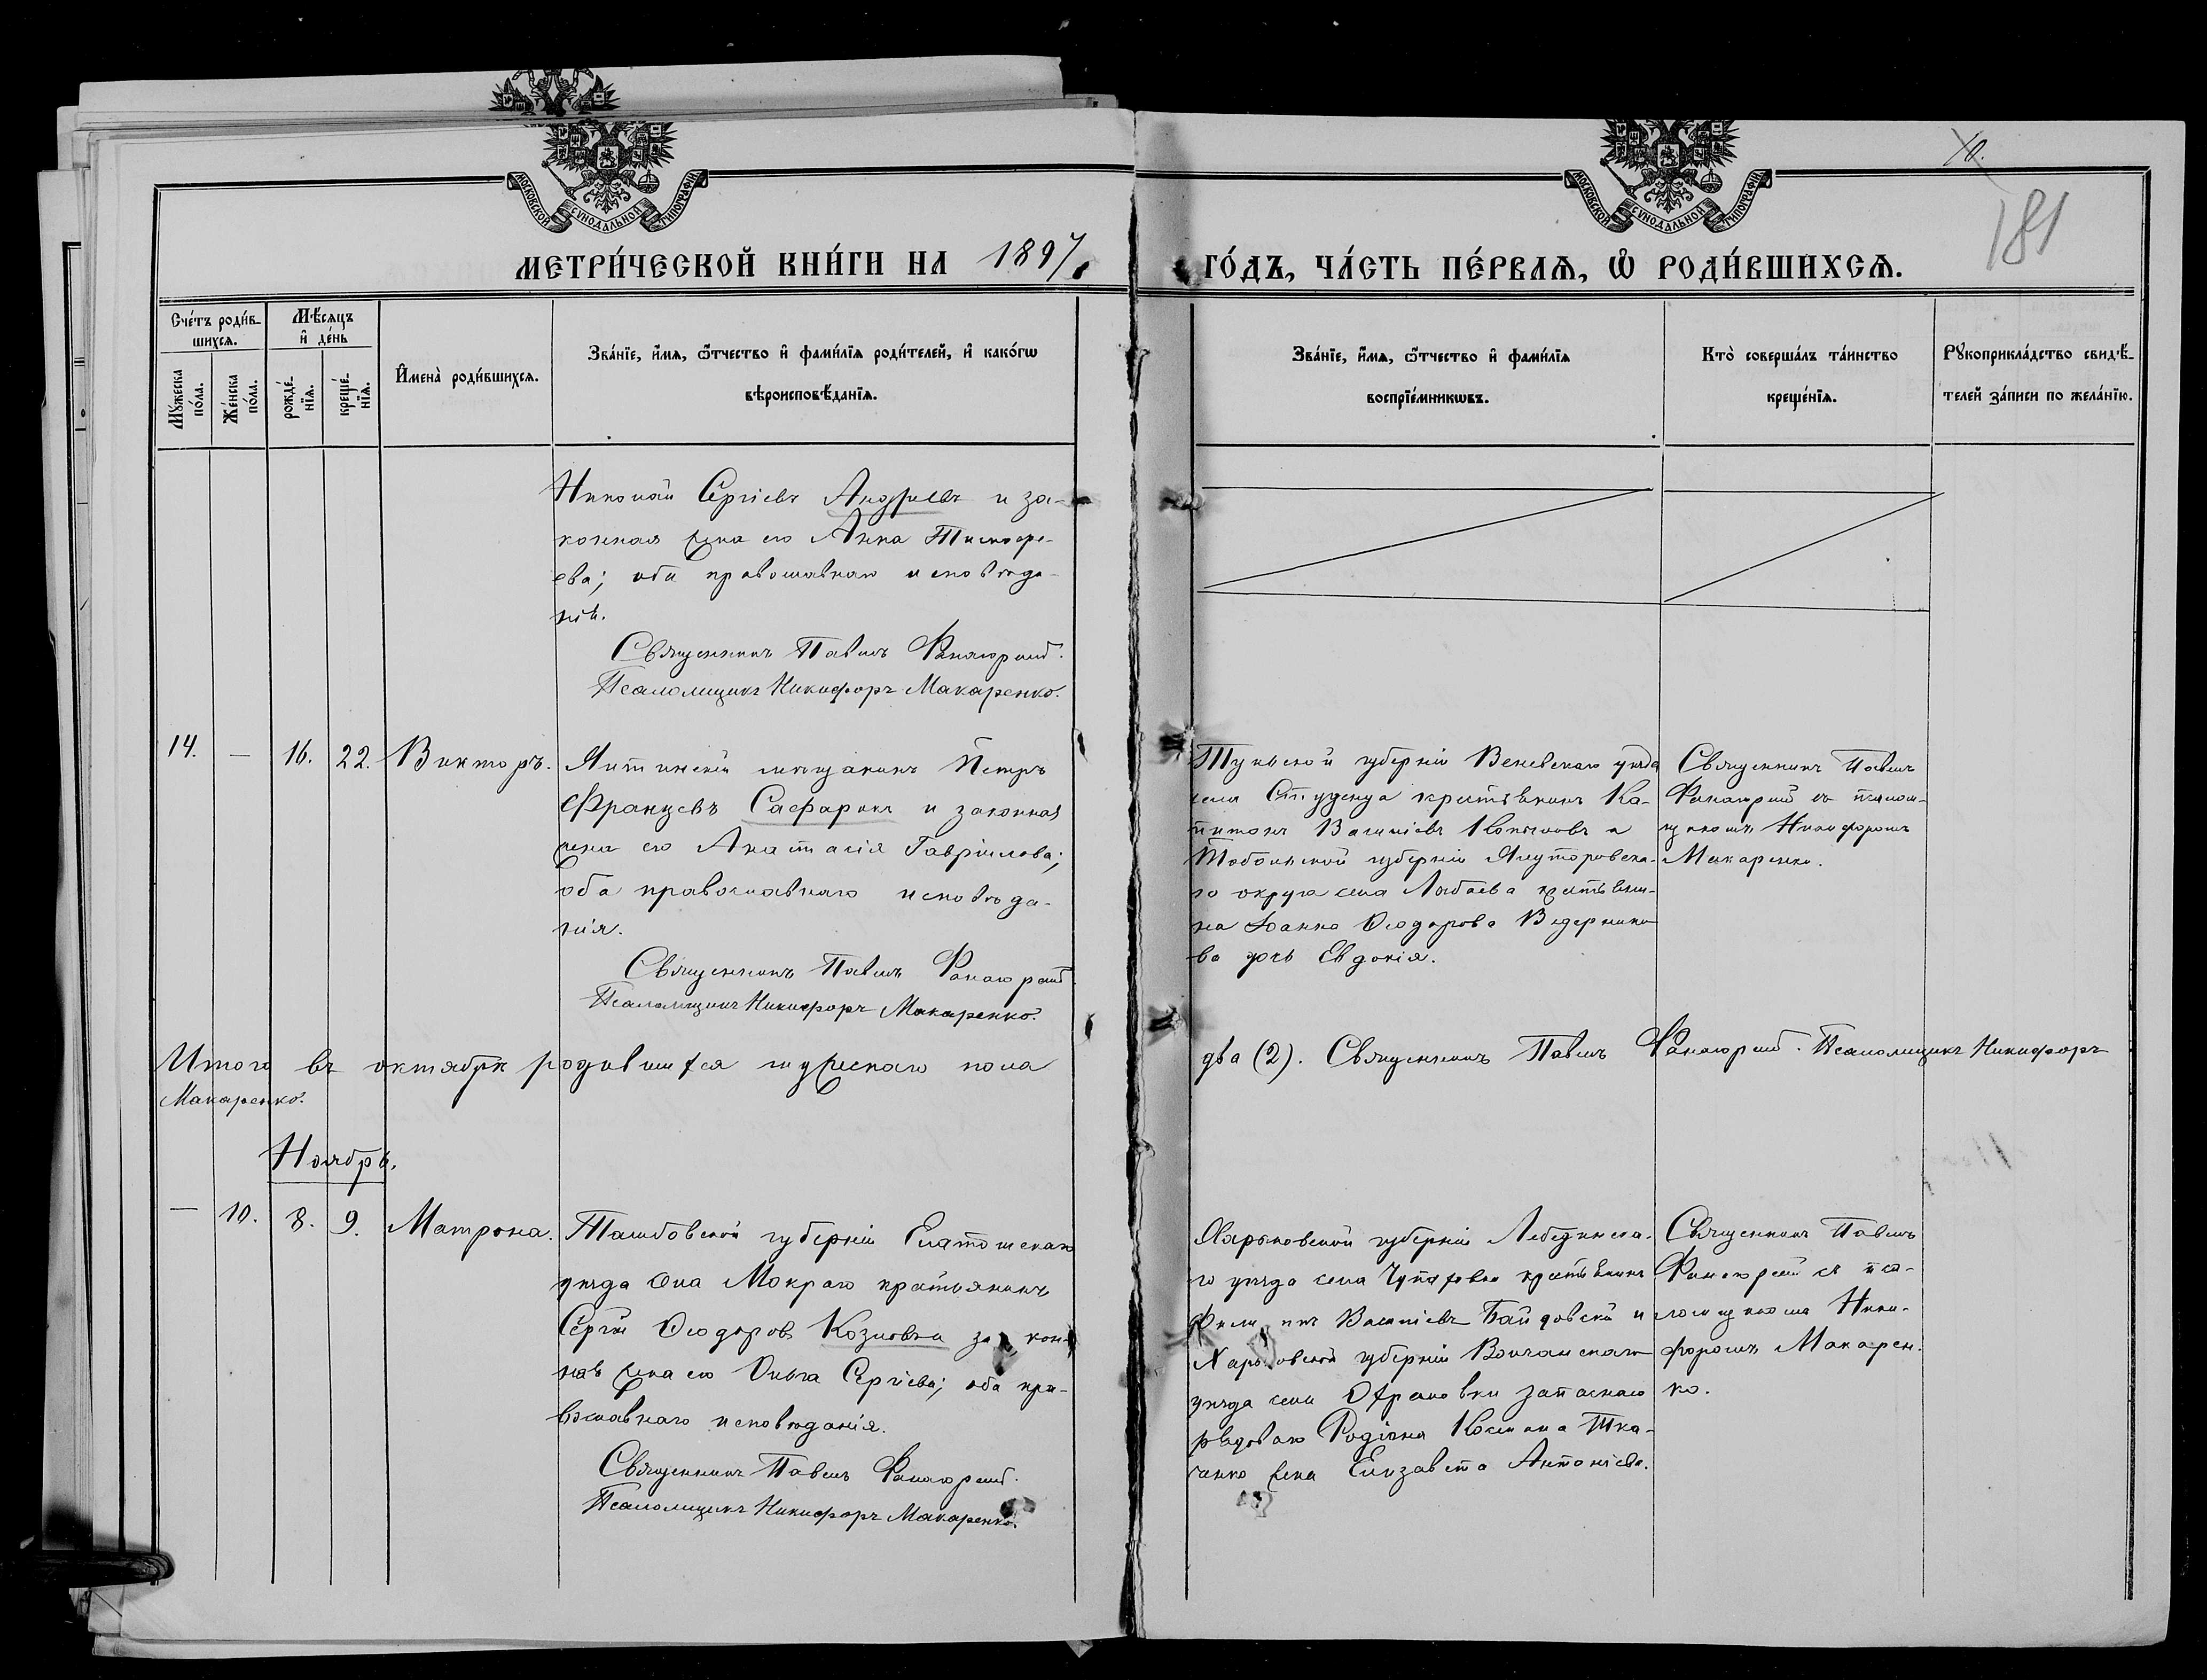 МОСКОВСКОЙ СѴНОДАЛЬНОЙ ТИПОГРАФІИ
МОСКОВСКОЙ СѴНОДАЛЬНОЙ ТИПОГРАФІИ
10.
181
МЕТРИ́ЧЕСКОЙ КНИ́ГИ НА 1897
ГО́ДЪ, ЧА́СТЬ ПЕ́РВАѦ, Ѡ҆ РОДИ́ВШИХСѦ.
Сче́тъ роди́в-
шихсѧ.
Мꙋ́жеска
по́ла.
Же́нска
по́ла.
Мѣ́сѧцъ
и҆ де́нь
рожде́-
нїѧ.
креще́-
нїѧ.
И҆мена̀ роди́вшихсѧ.
Зва́нїе, и҆́мѧ, ѻ҆́тчество и҆ фами́лїѧ роди́телей, и҆ како́гѡ
вѣроисповѣ́данїѧ.
Зва́нїе, и҆́мѧ, ѻ҆́тчество и҆ фами́лїѧ
воспрїе́мникѡвъ.
Кто̀ соверша́лъ та́инство
креще́нїѧ.
Рꙋкоприкла́дство свидѣ́-
телей за́писи по жела́нїю.
Николай Сергіевъ Андреевъ и за-
конная жена его Анна Тимофе-
ева; оба православнаго исповѣда-
нія.
Священникъ Павелъ
Псаломщикъ Никифоръ Макаренко.
14. — 16. 22. Викторъ.
мѣщанинъ Петръ
Францевъ Сафарикъ и законная
жена его Анастасія Гавріилова;
оба православнаго исповѣда-
нія.
Священникъ Павелъ
Псаломщикъ Никифоръ Макаренко.
Тульской губерніи Веневскаго уѣзда
села Студенца крестьянинъ Ка-
питонъ Василіевъ и
Тобольской губерніи Ялуторовска-
го округа села крестьяни-
на Іоанна Ѳеодорова Ведернико-
ва дочь Евдокія.
Священникъ Павелъ
съ псалом-
щикомъ Никифоромъ
Макаренко.
Итого въ октябрѣ родившихся мужескаго пола
два (2). Священникъ Павелъ Псаломщикъ Никифоръ
Макаренко.
Ноябрь.
— 10. 8. 9. Матрона.
Тамбовской губерніи Елатомскаго
уѣзда села Мокраго крестьянинъ
Сергій Ѳеодоровъ Козловъ и закон-
ная жена его Ольга Сергіева; оба пра-
вославнаго исповѣданія.
Священникъ Павелъ
Псаломщикъ Никифоръ Макаренко.
Харьковской губерніи Лебединска-
го уѣзда села Чупаховки крестьянинъ
Василіевъ и
Харьковской губерніи Волчанскаго
уѣзда села запаснаго
рядоваго Родіона Тка-
ченко жена Елизавета Антоніева.
Священникъ Павелъ
съ пса-
ломщикомъ Ники-
форомъ Макарен-
ко.